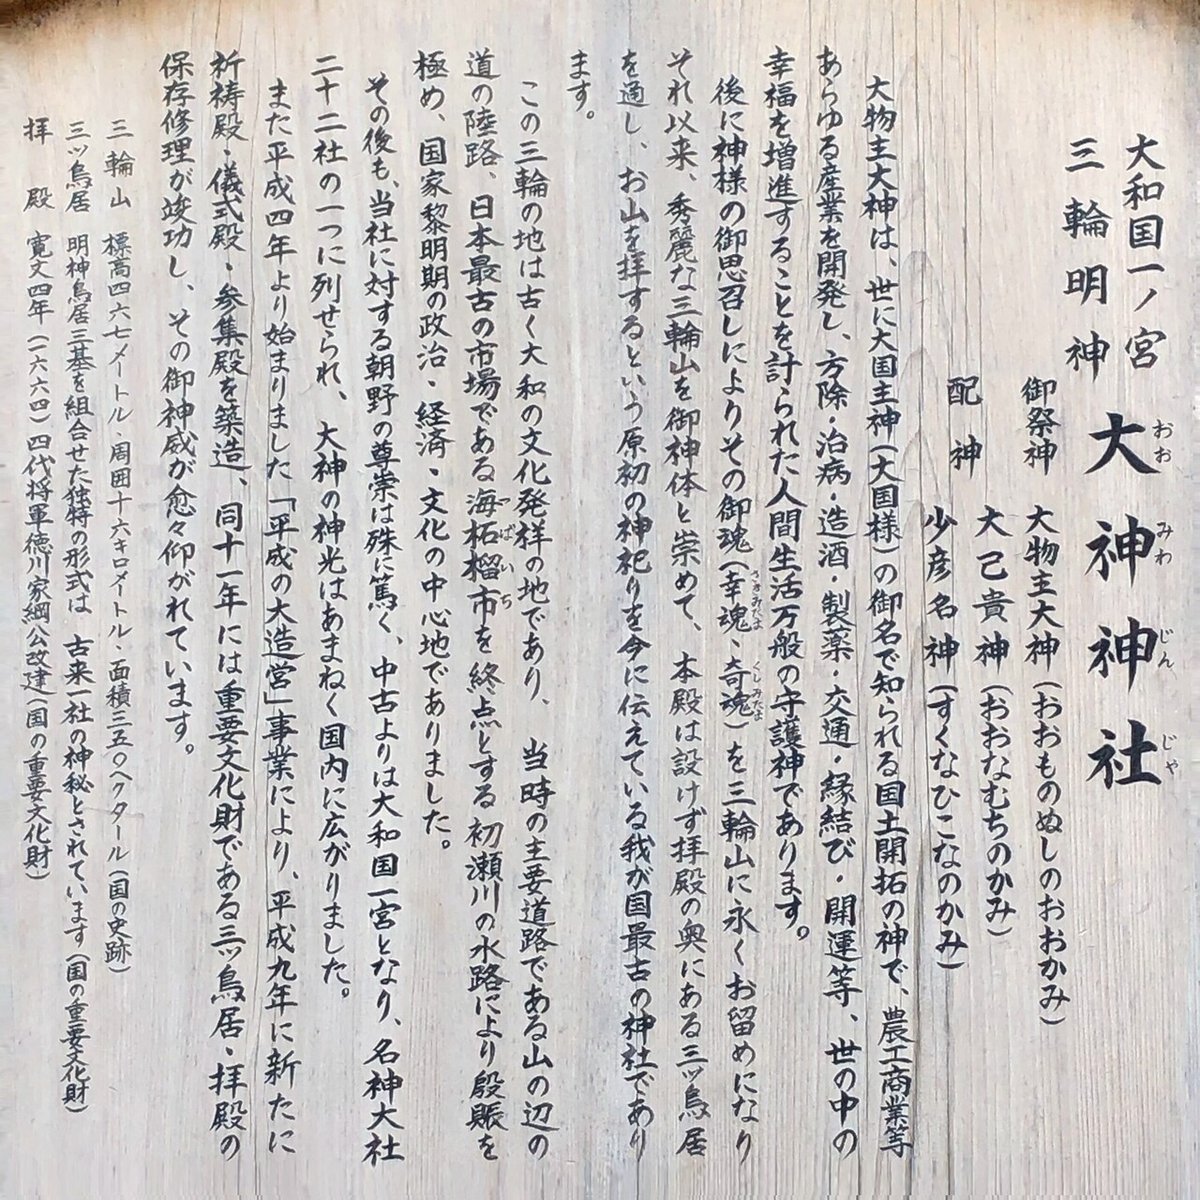 大和国一ノ宮
三輪明神
大神神社
おおみわじんじゃ
御祭神 大物主大神(おおものぬしのおおかみ)
配神 大己貴神(おおなむちのかみ)
少彦名神(すくなひこなのかみ)
大物主大神は、世に大国主神(大国様)の御名で知られる国土開拓の神で、農工商業等
あらゆる産業を開発し、方除・治病・造酒・製薬・交通・縁結び・開運等、世の中の
幸福を増進することを計られた人間生活万般の守護神であります。
後に神様の御思召しによりその御魂(幸魂、奇魂)を三輪山に永くお留めになり
さきみたま くしみたま
それ以来、秀麗な三輪山を御神体と崇めて、本殿は設けず拝殿の奥にある三ッ鳥居
を通し、お山を拝するという原初の神祀りを今に伝えている我が国最古の神社であり
ます。
この三輪の地は古く大和の文化発祥の地であり、当時の主要道路である山の辺の
道の陸路、日本最古の市場である海柘榴市を終点とする初瀬川の水路により殷賑を
つばいち
極め、国家黎明期の政治・経済・文化の中心地でありました。
その後も、当社に対する朝野の尊崇は殊に篤く、中古よりは大和国一宮となり、名神大社
二十二社の一つに列せられ、大神の神光はあまねく国内に広がりました。
また平成四年より始まりました「平成の大造営」事業により、平成九年に新たに
祈祷殿・儀式殿・参集殿を築造、同十一年には重要文化財である三ッ鳥居・拝殿の
保存修理が竣功し、その御神威が愈々仰がれています。
三輪山 標高四六七メートル・周囲十六キロメートル・面積三五〇ヘクタール(国の史跡)
三ッ鳥居 明神鳥居三基を組合せた独特の形式は 古来一社の神秘とされています(国の重要文化財)
拝殿 寛文四年(一六六四)四代将軍徳川家綱公改建(国の重要文化財)